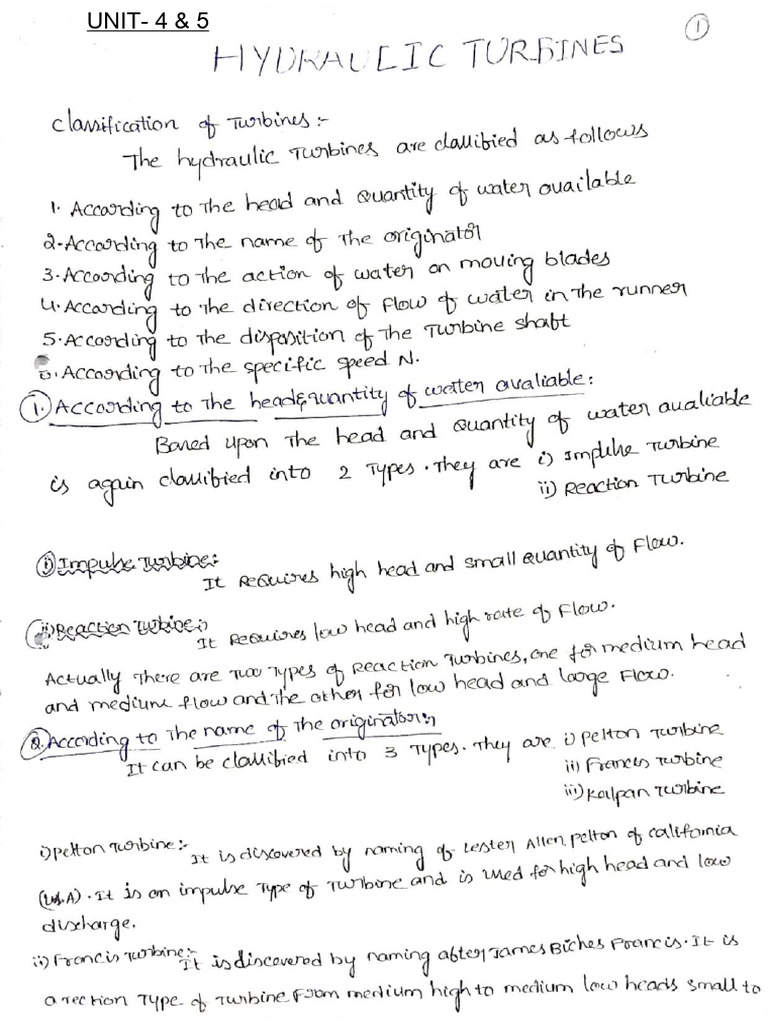 UNIT- 4 & 5
1
HYDRAULIC TURBINES
Classification of Turbines :-
The hydraulic Turbines are classified as follows
1. According to the head and Quantity of water available
2. According to the name of the originator
3. According to the action of water on moving blades
4. According to the direction of flow of water in the runner
5. According to the disposition of the Turbine shaft
6. According to the specific speed N.
1. According to the head & quantity of water avaliable :
Based upon the head and Quantity of water avaliable
is again classified into 2 Types. They are i) Impulse Turbine
ii) Reaction Turbine
i) Impulse Turbine:
It Requires high head and small Quantity of Flow.
ii) Reaction Turbine:
It Requires low head and high rate of Flow.
Actually There are Two Types of Reaction Turbines, one for medium head
and medium flow and the other for low head and large Flow.
2. According to the name of the originator:
It can be classified into 3 Types. They are i) Pelton Turbine
ii) Francis Turbine
iii) Kalpan Turbine
i) Pelton Turbine :-
It is discovered by naming of Lester Allen Pelton of california
(U.S.A). It is an impulse Type of Turbine and is used for high head and low
discharge.
ii) Francis Turbine :- It is discovered by naming after James Biches Francis. It is
a rection Type of Turbine From medium high to medium low heads small to